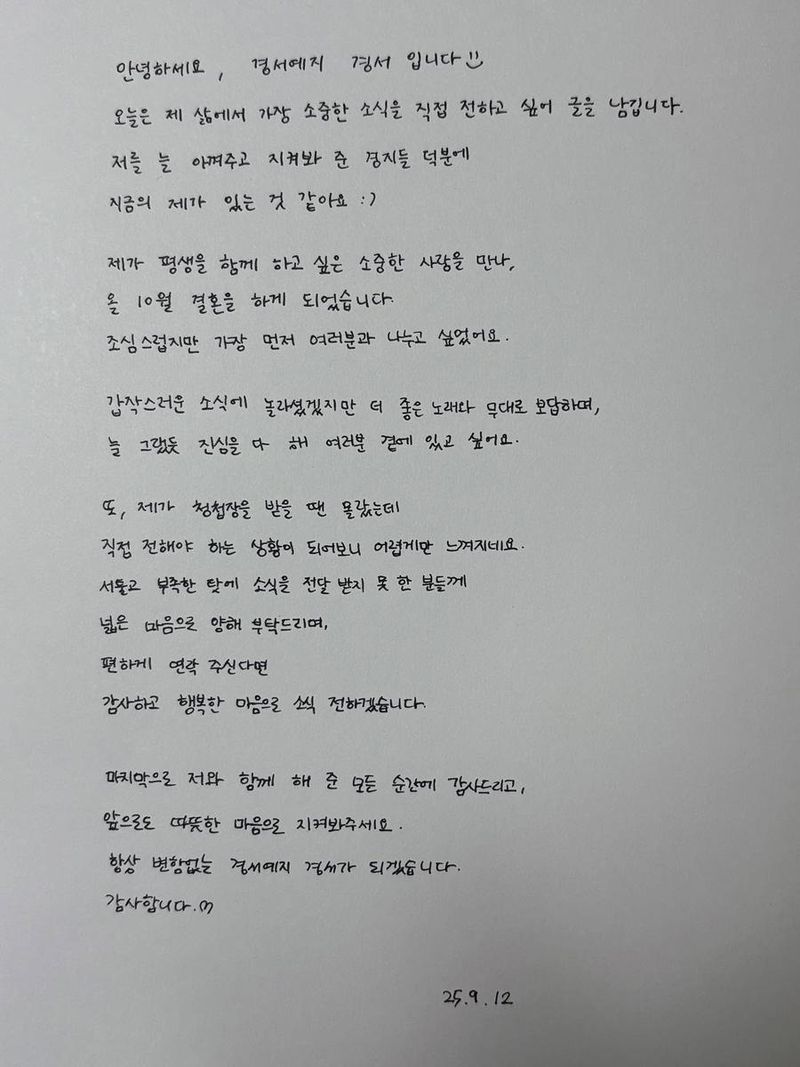 안녕하세요, 경서예지 경서 입니다
오늘은 제 삶에서 가장 소중한 소식을 직접 전하고 싶어 글을 남깁니다.
저를 늘 아껴주고 지켜봐 준 경지들 덕분에
지금의 제가 있는 것 같아요 :)
제가 평생을 함께 하고 싶은 소중한 사람을 만나,
올 10월 결혼을 하게 되었습니다.
조심스럽지만 가장 먼저 여러분과 나누고 싶었어요.
갑작스러운 소식에 놀라셨겠지만 더 좋은 노래와 무대로 보답하며,
늘 그랬듯 진심을 다 해 여러분 곁에 있고 싶어요.
또, 제가 청첩장을 받을 땐 몰랐는데
직접 전해야 하는 상황이 되어보니 어렵게만 느껴지네요.
서툴고 부족한 탓에 소식을 전달 받지 못 한 분들께
넓은 마음으로 양해 부탁드리며,
편하게 연락 주신다면
감사하고 행복한 마음으로 소식 전하겠습니다.
마지막으로 저와 함께 해 준 모든 순간에 감사드리고,
앞으로도 따뜻한 마음으로 지켜봐주세요.
항상 변함없는 경서예지 경서가 되겠습니다.
감사합니다.
25.9.12